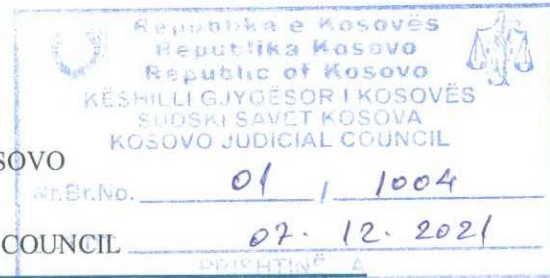 Republika e Kosovës
Republika Kosovo
Republic of Kosovo
KËSHILLI GJYQËSOR I KOSOVËS
SUDSKI SAVET KOSOVA
KOSOVO JUDICIAL COUNCIL
SOVO
Nr.Br.No. 01 / 1004
COUNCIL 07. 12. 2021
PRISHTINË